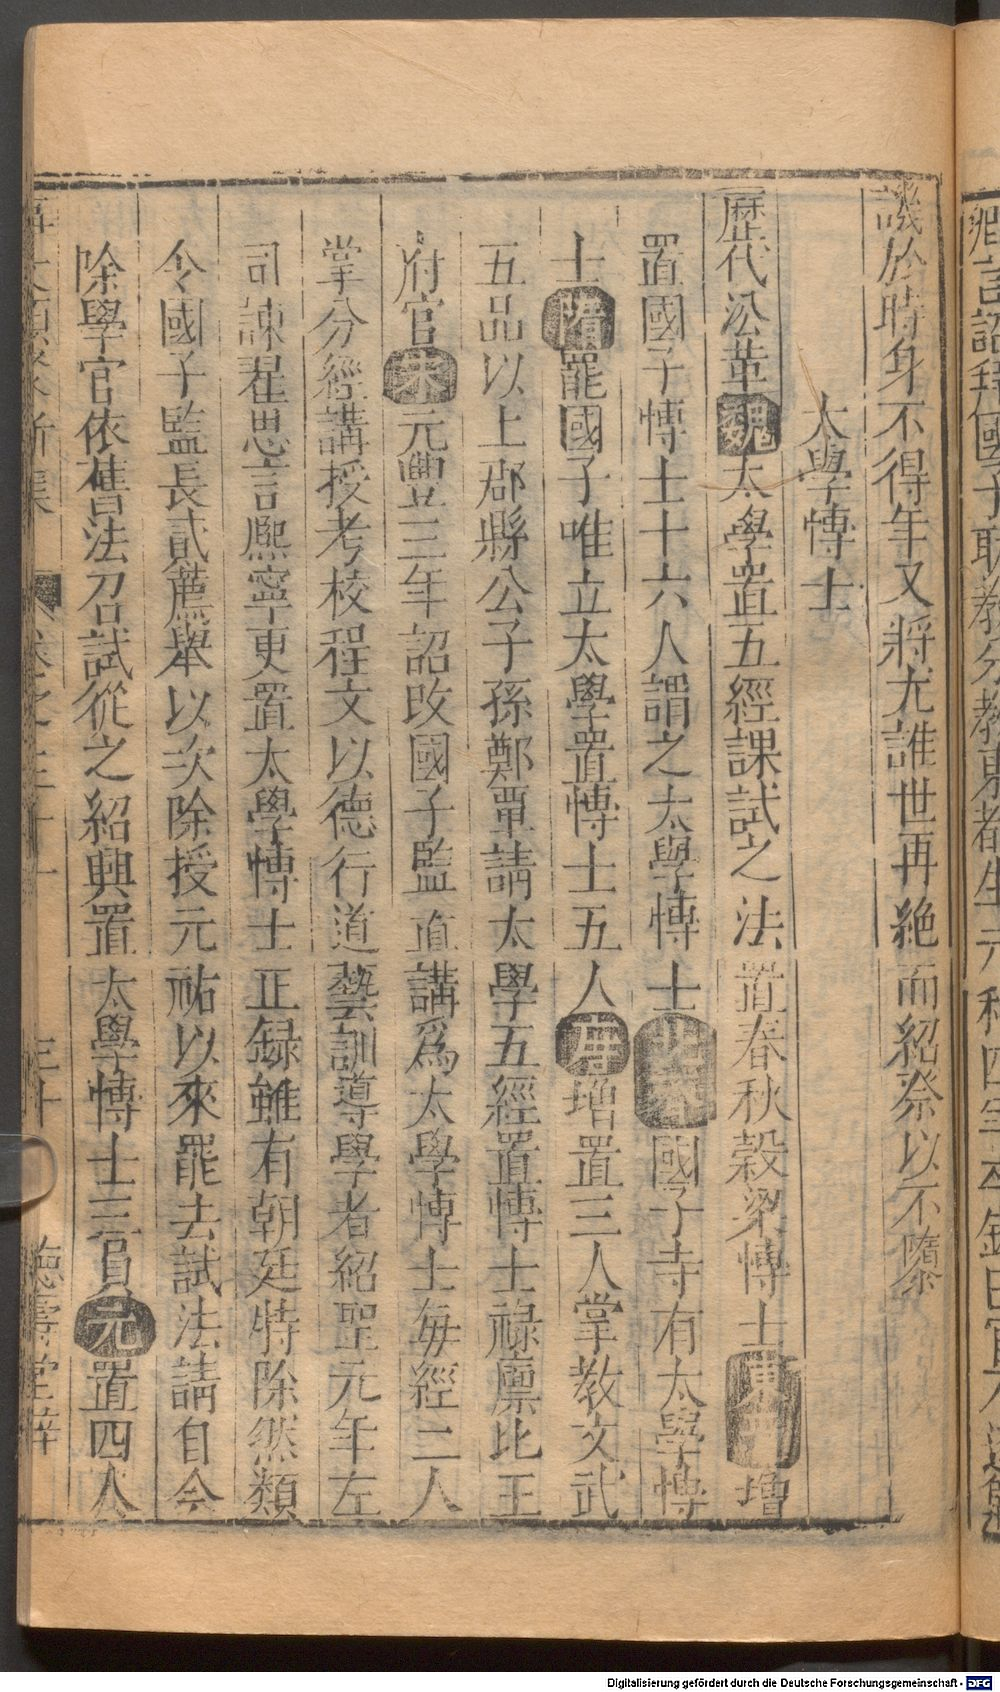 譏於時身不得年又將尤誰世再絶而紹祭以不隳
大學博士
歷代㳂革魏太學置五經課試之法置春秋穀梁博士東晉增
置國子博士十六人謂之太學博士北齊國子寺有太學博
士隋罷國子唯立太學置博士五人唐增置三人掌教文武
五品以上郡縣公子孫鄭覃請太學五經置博士祿廪比王
府官宋元豐三年詔改國子監直講爲太學博士每經二人
掌分經講授考校程文以德行道藝訓導學者紹聖元年左
司諫翟思言熈寧更置太學博士正録雖有朝廷特除然類
令國子監長貳薦舉以次除授元祐以來罷去試法請自今
除學官依舊法召試從之紹興置太學博士三員元置四人
事文類聚新集 卷之三十 三十 德壽堂梓
Digitalisierung gefördert durch die Deutsche Forschungsgemeinschaft - DFG